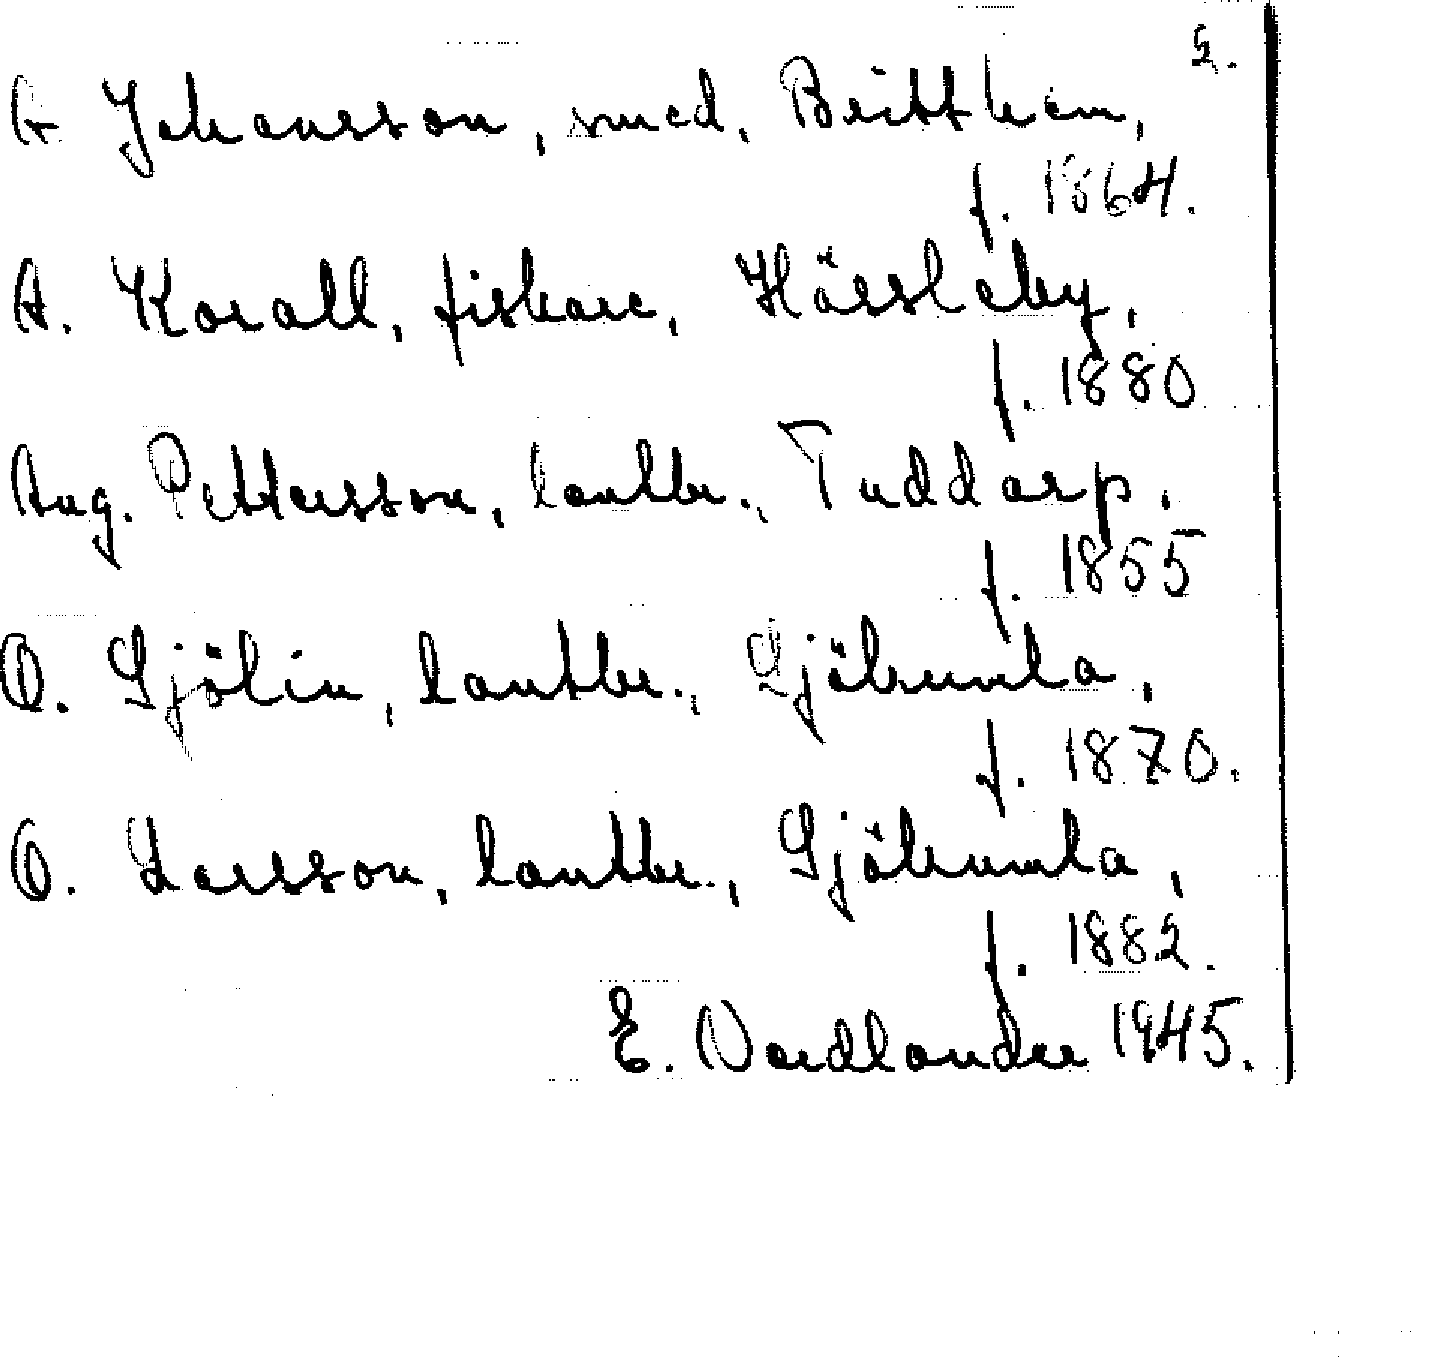 2.
A. Johansson, smed, Brittham,
f. 1864.
A. Korall, fiskare, Hässleby,
f. 1880
Aug. Pettersson, lantbr., Tuddarp,
f. 1855
O. Sjölin, lantbr., Sjökumla,
f. 1870.
O. Larsson, lantbr., Sjökumla,
f. 1882.
E. Nordlander 1945.